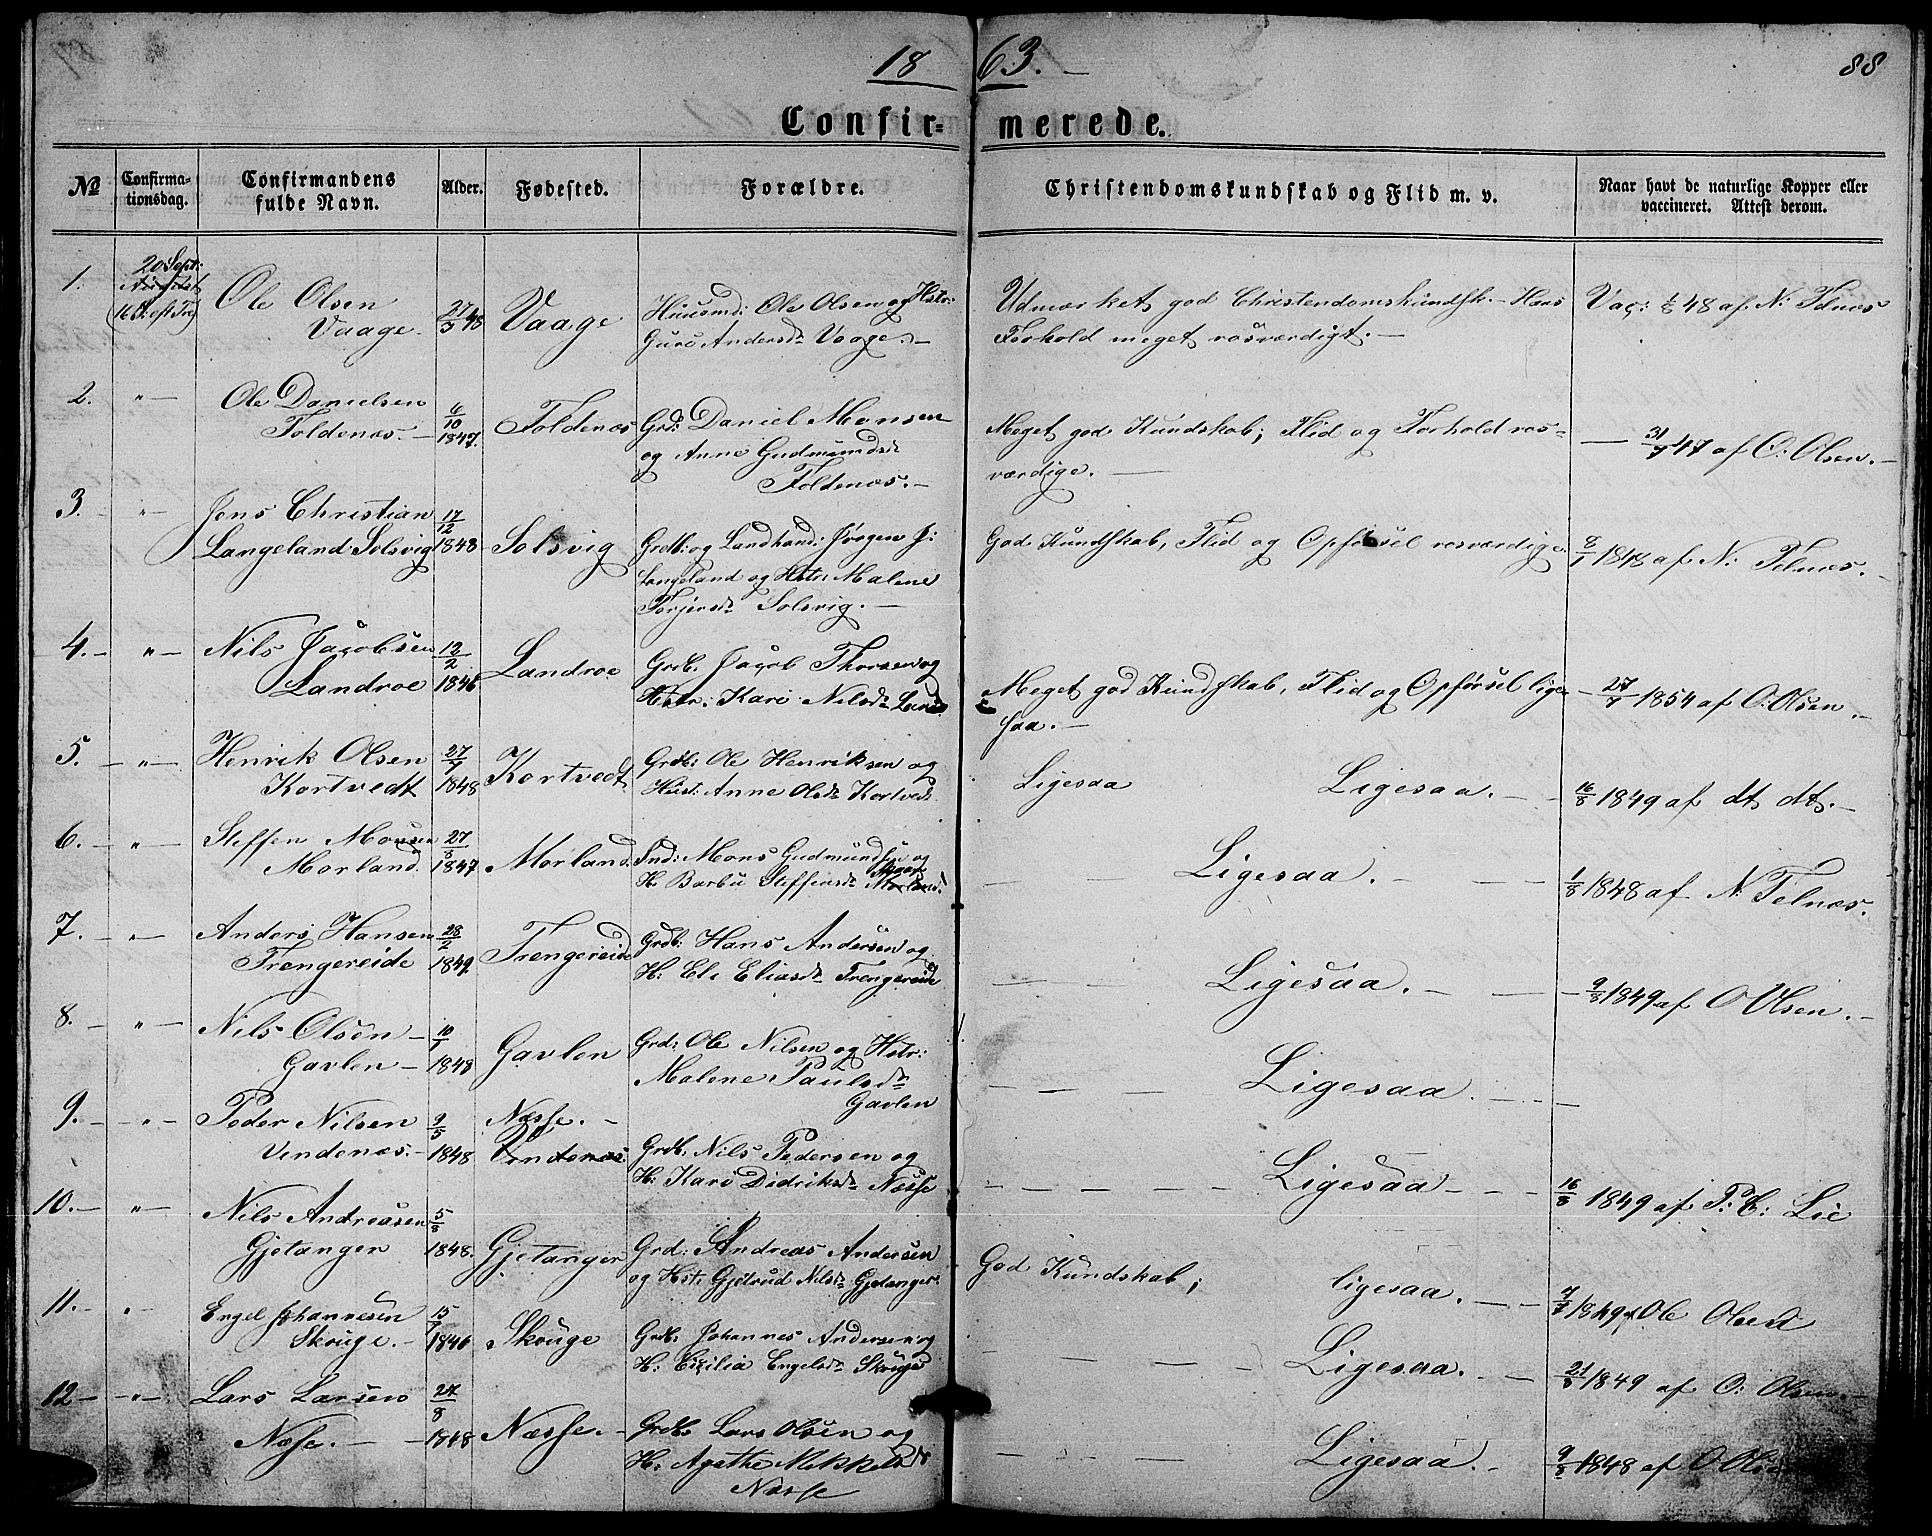 1863.
88
Confirmerede.
No
Confirmationsdag.
Confirmandens fulde Navn.
Alder.
Fødested.
Forældre.
Christendomskundskab og Flid m. v.
Naar havt de naturlige Kopper eller vaccineret. Attest derom.
1.
20 Sept:
(16 S. eft Tr.)
Ole Olsen
Vaage.
27/3 48
Vaage
Huusmd: Ole Olsen og Hstr:
Guro Andersdr Vaage.
Udmærket god Christendomskundsk. Hans
Forhold meget rosværdigt.
Vac: 1/8 48 af N: Telnæs
2. "
Ole Danielsen
Toldenæs.
6/10 1847.
Toldenæs
Grd: Daniel Monsen
og Anne Gudmundsdr
Toldenæs.
Meget god Kundskab; Flid og Forhold ros-
værdige.
47 af O: Olsen.
3. "
Jens Christian
Langeland Solsvig
17/12 1848
Solsvig
Grdb: og Landhand: Jørgen J:
Langeland og Hstr: Malene
Torjersdr Solsvig.
God Kundskab, Flid og Opførsel rosværdige
1848 af N: Telnæs.
4. "
Nils Jacobsen
Landroe
12/2 1846
Landroe
Grdb. Jacob Thorsen og
Hstr. Kari Nilsdr Landr
Meget god Kundskab, Flid og Opførsel lige-
saa.
27/7 1854 af O: Olsen.
5. "
Henrik Olsen
Kortvedt
27/7 1848
Kortvedt
Grdb: Ole Henriksen og
Hust: Anne Olsdr Kortvedt
Ligesaa Ligesaa.
16/8 1849 af dt dt.
6. "
Steffen Monsen
Morland.
27/8 1847
Morland.
Ind: Mons Gudmundsen og
H. Barbu Steffensdr Morland.
Ligesaa.
1/8 1848 af N. Telnæs.
7. "
Anders Hansen
Trengereide
28/2 1849.
Trengereide
Grdb: Hans Andersen og
H: Eli Eliasdr Trengereide
Ligesaa.
9/8 1849 af O Olsen.
8. "
Nils Olsen
Gavlen
10/1 1848
Gavlen
Grd: Ole Nilsen og Hstr:
Malene Paulsdr
Gavlen
Ligesaa.
9. "
Peder Nilsen
Vindenæs.
9/5 1848
Næsse.
Vindenæs.
Grdb: Nils Pedersen og
H: Kari Didriksdr Næsse
Ligesaa
16/8 1849 af P. C: Lie
10. "
Nils Andreasen
Gjetanger
5/8 1848.
Gjetanger
Grd: Andreas Andersen
og Hst: Gjetrud Nilsdr Gjetanger
God Kundskab; ligesaa.
1849 Ole Olsen
11. "
Engel Johannesen
Skouge.
15/7 1846
Skouge
Grdb: Johannes Andersen og
H: Cicilia Engelsdr Skouge
Ligesaa.
21/8 1849 af O: Olsen.
12 "
Lars Larsen
Næsse.
24/8 1848
Næsse.
Grdb. Lars Olsen og
H: Agathe Mikkelsdr
Næsse
Ligesaa.
9/8 1848 af O Olsen